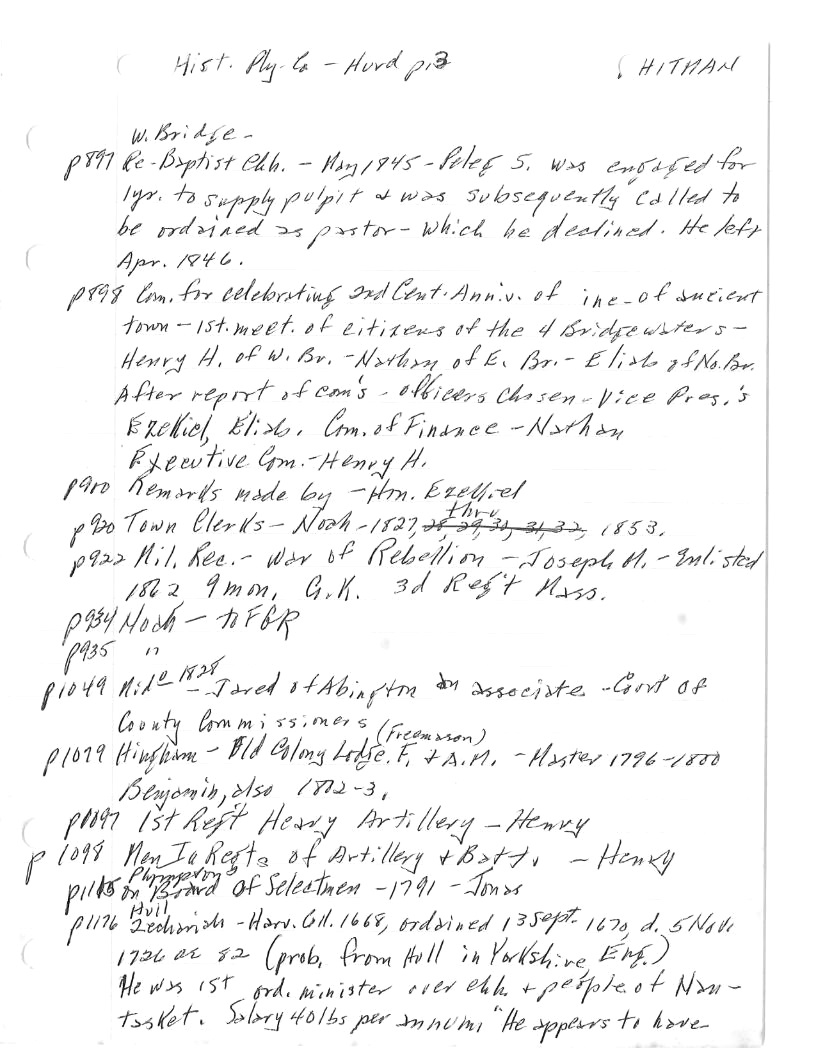 Hist. Ply. Co - Hurd p.3 WHITMAN
W. Bridge -
p897 Re-Baptist Chh. - May 1845 - Peleg S. was engaged for
1yr. to supply pulpit & was subsequently called to
be ordained as pastor - which he declined. He left
Apr. 1846.
p898 Com. for celebrating 2nd Cent. Anniv. of inc - of ancient
town - 1st. meet. of citizens of the 4 Bridgewaters -
Henry H. of W. Br. - Nathan of E. Br. - Eliab of No. Br.
After report of com's - officers chosen - Vice Pres.'s
Ezekiel, Eliab. Com. of Finance - Nathan
Executive Com. - Henry H.
p900 Remarks made by - Hon. Ezekiel
thru
p920 Town Clerks - Noah - 1827, 28, 29, 30, 31, 32, 1853.
p922 Mil. Rec. - War of Rebellion - Joseph M. - Enlisted
1862 9 mon. G. K. 3d Reg't Mass.
p934 Noah - to FGR
p935 "
p1049 1828 - Jared of Abington an associate - Court of
County Commissioners
(Freemason)
p1079 Hingham - Old Colony Lodge. F. & A.M. - Master 1796-1800
Benjamin, also 1802-3.
1st Reg't Heavy Artillery - Henry
p 1098 Men In Regts of Artillery & Batt. - Henry
Plympton
on Board of Selectmen - 1791 - Jonas
Hull
p1176 Zechariah - Harv. Coll. 1668, ordained 13 Sept. 1670, d. 5 Nov.
1726 ae 82 (prob. from Hull in Yorkshire Eng.)
He was 1st ord. minister over chh. & people of Nan-
tasket. Salary 40 lbs per annum "He appears to have